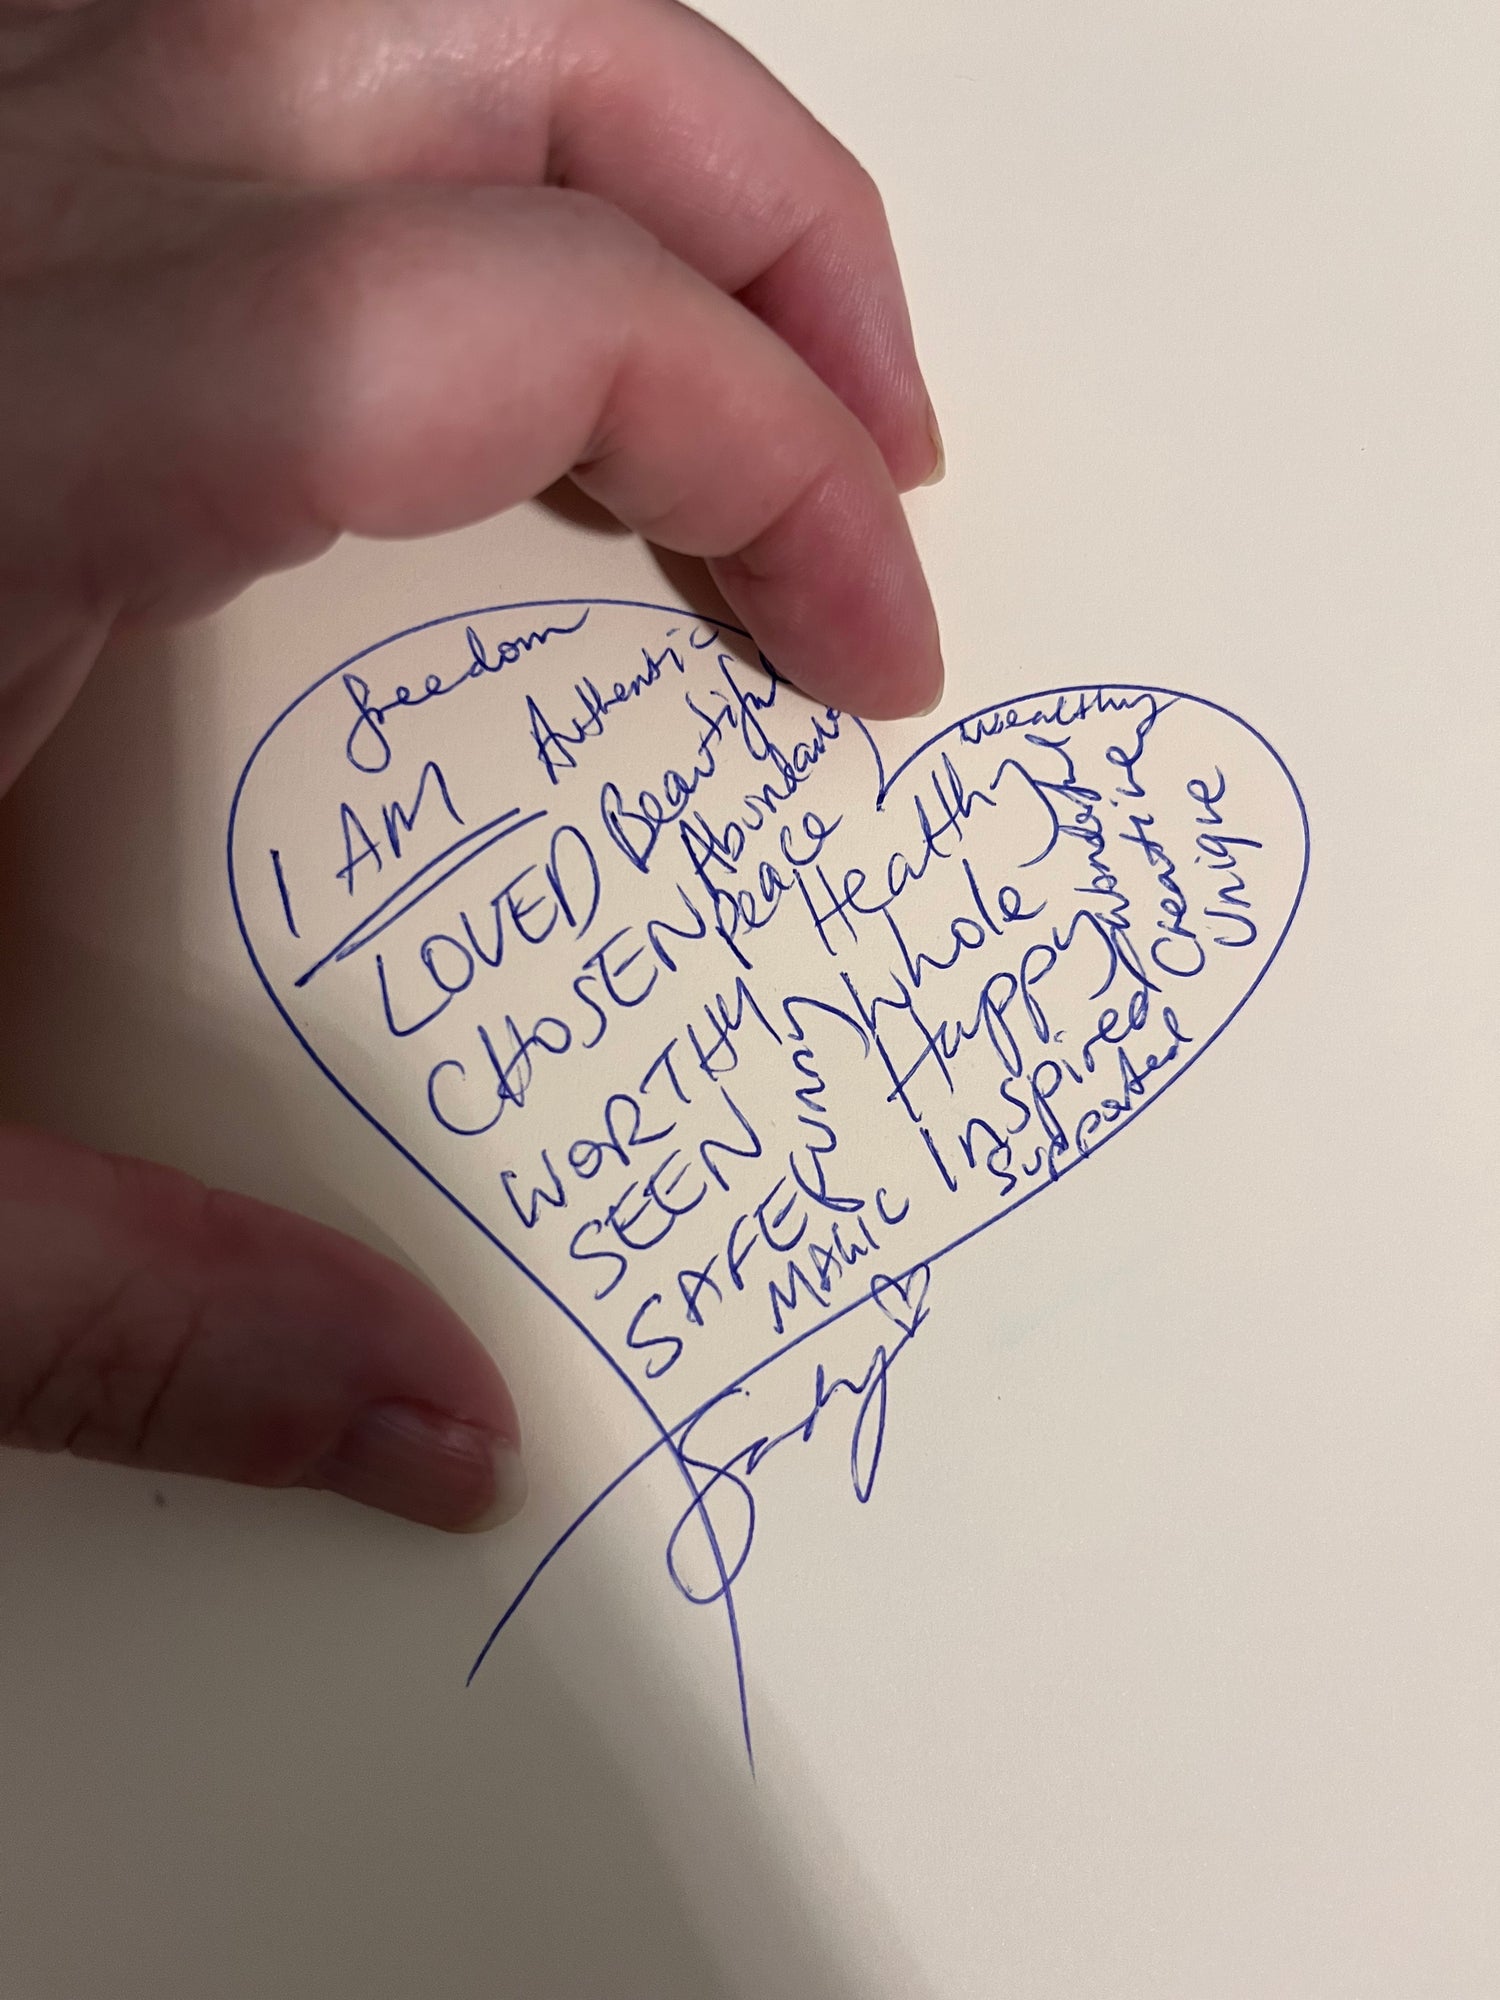 freedom
I AM
Authentic
LOVED
Beautiful
CHOSEN
Abundance
Peace
WORTHY
Healthy
wealthy
SEEN
whole
SAFE
MAGIC
Happy
Wonderful
Inspired
Creative
Unique
Supported
Sandy